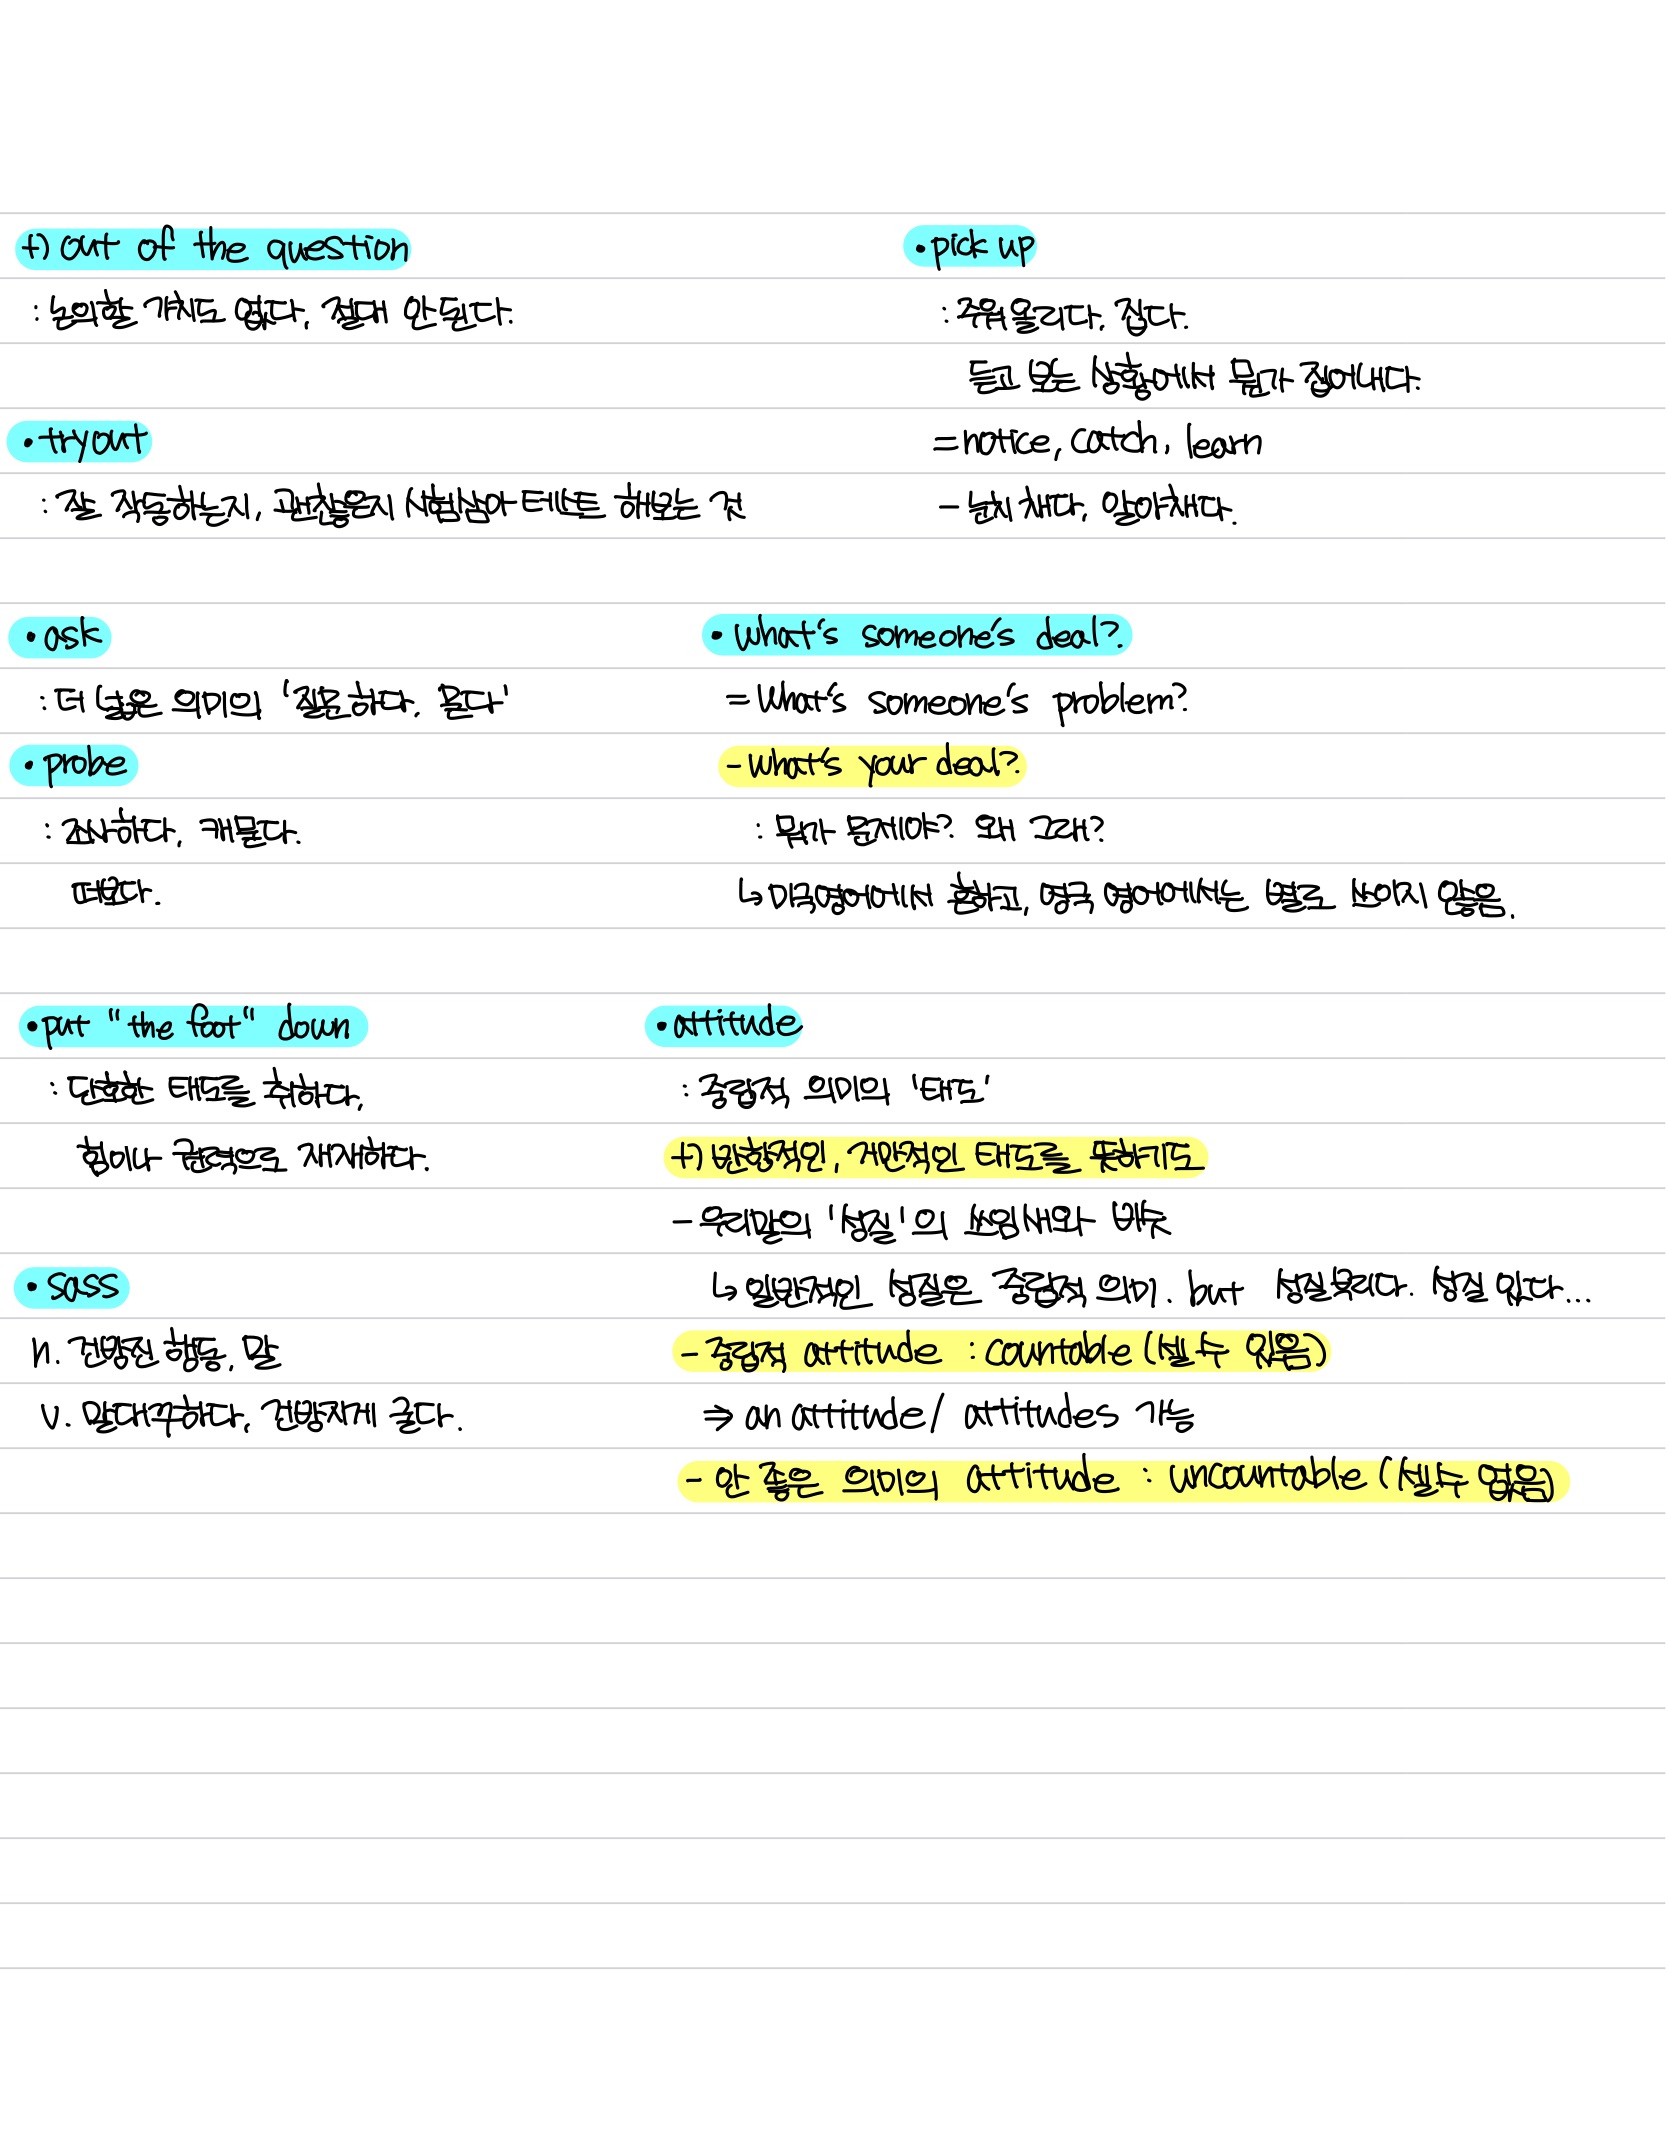 +) out of the question
:논의할 가치도 없다, 절대 안된다.
• tryout
: 잘 작동하는지, 괜찮은지 시험삼아 테스트 해보는 것
• pick up
: 주워 올리다, 집다.
듣고 보는 상황에서 뭔가 집어내다.
= notice, catch, learn
- 눈치 채다, 알아채다.
• ask
: 더 넓은 의미의 '질문하다, 묻다'
• probe
: 조사하다, 캐묻다.
떠보다.
• what's someone's deal?
= What's someone's problem?
- what's your deal?
: 뭐가 문제야? 왜 그래?
↳ 미국영어에서 흔하고, 영국 영어에서는 별로 쓰이지 않음.
• put "the foot" down
: 단호한 태도를 취하다,
힘이나 권력으로 제재하다.
• sass
n. 건방진 행동, 말
v. 말대꾸하다, 건방지게 굴다.
• attitude
: 중립적 의미의 '태도'
+) 반항적인, 거만적인 태도를 뜻하기도
- 우리말의 '성질'의 쓰임새와 비슷
↳ 일반적인 성질은 중립적 의미. but 성질부리다. 성질 있다...
- 중립적 attitude : countable (셀 수 있음)
⇒ an attitude / attitudes 가능
- 안 좋은 의미의 attitude : uncountable (셀 수 없음)